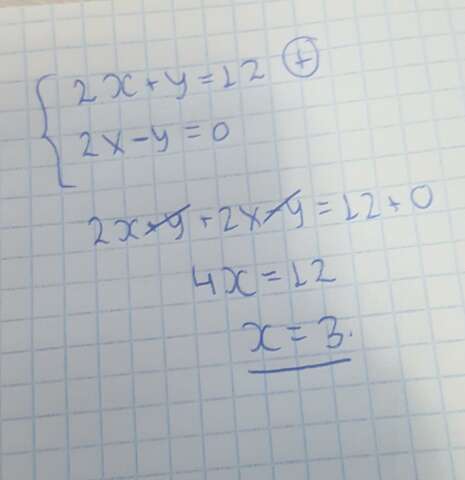 2x+y=12 (+)
2x-y=0
2x+y+2x-y=12+0
4x=12
x=3.